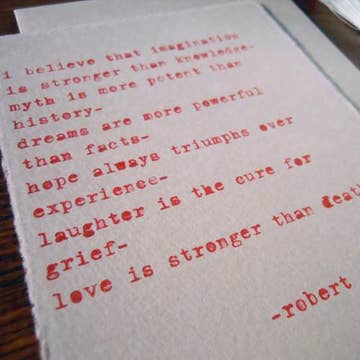 i believe that imagination
is stronger than knowledge-
myth is more potent than
history-
dreams are more powerful
than facts-
hope always triumphs over
experience-
laughter is the cure for
grief-
love is stronger than deat
-robert